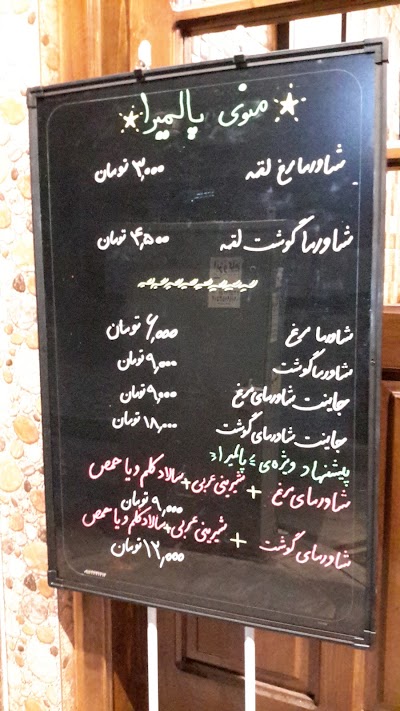 منوی پالمیرا
شاورما مرغ لقمه ۳,۰۰۰ تومان
شاورما گوشت لقمه ۴,۵۰۰ تومان
شاورما مرغ ۶,۰۰۰ تومان
شاورما گوشت ۹,۰۰۰ تومان
جاینت شاورمای مرغ ۹,۰۰۰ تومان
جاینت شاورمای گوشت ۱۸,۰۰۰ تومان
پیشنهاد ویژه‌ی پالمیرا:
شاورمای مرغ + شیرینی عربی + سالاد کلم و یا حمص
۹,۰۰۰ تومان
شاورمای گوشت + شیرینی عربی + سالاد کلم و یا حمص
۱۲,۰۰۰ تومان